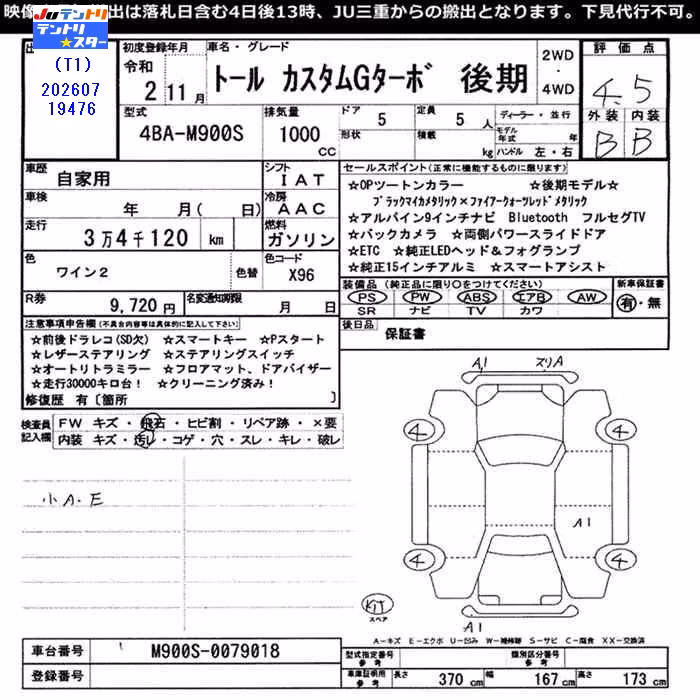 映像 出は落札日含む4日後13時、JU三重からの搬出となります。下見代行不可。
JUテントリ
テントリ★スター
(T1)
202607
19476
初度登録年月
車名・グレード
2WD・4WD
評価点
令和
2 11月
トール カスタムGターボ 後期
4.5
型式
4BA-M900S
排気量
1000 CC
ドア 5
形状
定員 5 人
積載 kg
ディーラー・並行
モデル年式 年
ハンドル 左・右
外装 内装
B B
車歴 自家用
シフト IAT
セールスポイント(正常に機能するものに限ります)
☆OPツートンカラー ☆後期モデル☆
ブラックマイカメタリック×ファイアークォーツレッドメタリック
☆アルパイン9インチナビ Bluetooth フルセグTV
☆バックカメラ ☆両側パワースライドドア
☆ETC ☆純正LEDヘッド&フォグランプ
☆純正15インチアルミ ☆スマートアシスト
車検 年 月( 日)
冷房 AAC
走行 3万4千120 km
燃料 ガソリン
色 ワイン2 色替
色コード X96
装備品(純正品に限り○をつけてください)
PS PW ABS エアB AW
SR ナビ TV カワ
新車保証書
有・無
R券 9,720 円
名変通知期限 月 日
後日品 保証書
注意事項申告欄(不具合内容等は具体的に記入して下さい)
☆前後ドラレコ(SD欠) ☆スマートキー ☆Pスタート
☆レザーステアリング ☆ステアリングスイッチ
☆オートリトラミラー ☆フロアマット、ドアバイザー
☆走行30000キロ台! ☆クリーニング済み!
修復歴 有〔箇所 〕
検査員記入欄
FW キズ・飛石・ヒビ割・リペア跡・×要
内装 キズ・汚レ・コゲ・穴・スレ・キレ・破レ
小A.E
A1 スリA
4 4
A1
4 4
KIT
スペア
A1
A-キズ E-エクボ U-凹み W-補修跡 S-サビ C-腐食 XX-交換済
車台番号 M900S-0079018
登録番号
型式指定番号 参考
類別区分番号 参考
車庫証明用 参考
長さ 370 cm 幅 167 cm 高さ 173 cm